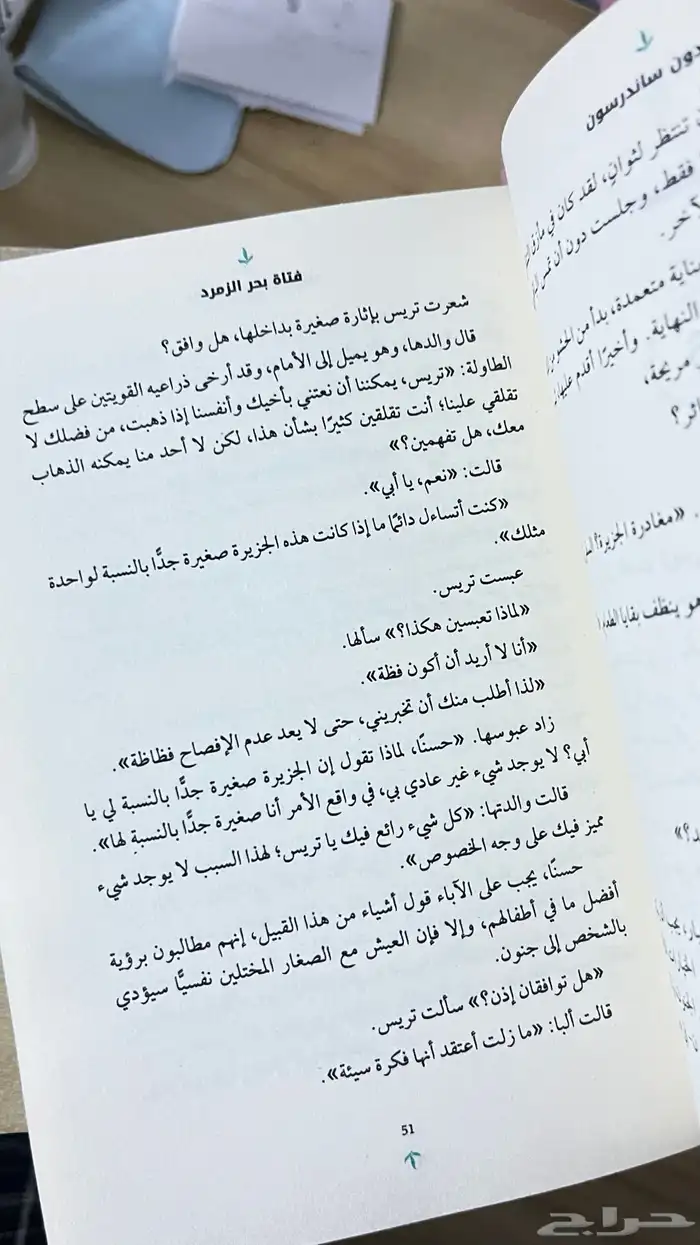 فتاة بحر الزمرد
شعرت تريس بإثارة صغيرة بداخلها، هل وافق؟
قال والدها، وهو يميل إلى الأمام، وقد أرخى ذراعيه القويتين على سطح
الطاولة: «تريس، يمكننا أن نعتني بأخيك وأنفسنا إذا ذهبت، من فضلك لا
تقلقي علينا؛ أنت تقلقين كثيرًا بشأن هذا، لكن لا أحد منا يمكنه الذهاب
معك، هل تفهمين؟»
قالت: «نعم، يا أبي».
«كنت أتساءل دائمًا ما إذا كانت هذه الجزيرة صغيرة جدًّا بالنسبة لواحدة
مثلك».
عبست تريس.
«لماذا تعبسين هكذا؟» سألها.
«أنا لا أريد أن أكون فظة».
«لذا أطلب منك أن تخبريني، حتى لا يعد عدم الإفصاح فظاظة».
زاد عبوسها. «حسنًا، لماذا تقول إن الجزيرة صغيرة جدًّا بالنسبة لي يا
أبي؟ لا يوجد شيء غير عادي بي، في واقع الأمر أنا صغيرة جدًّا بالنسبة لها».
قالت والدتها: «كل شيء رائع فيك يا تريس؛ لهذا السبب لا يوجد شيء
مميز فيك على وجه الخصوص».
حسنًا، يجب على الآباء قول أشياء من هذا القبيل، إنهم مطالبون برؤية
أفضل ما في أطفالهم، وإلا فإن العيش مع الصغار المختلين نفسيًّا سيؤدي
بالشخص إلى جنون.
«هل توافقان إذن؟» سألت تريس.
قالت ألبا: «ما زلت أعتقد أنها فكرة سيئة».
51
دون ساندرسون
تنتظر لثوانٍ، لقد كان في مأزق
فقط، وجلست دون أن تمس
بناية متعمدة، بدأ من
النهاية. وأخيرًا أقدم عليها
مريحة،
«مغادرة الجزيرة؟
هو ينظف بقايا
حراج